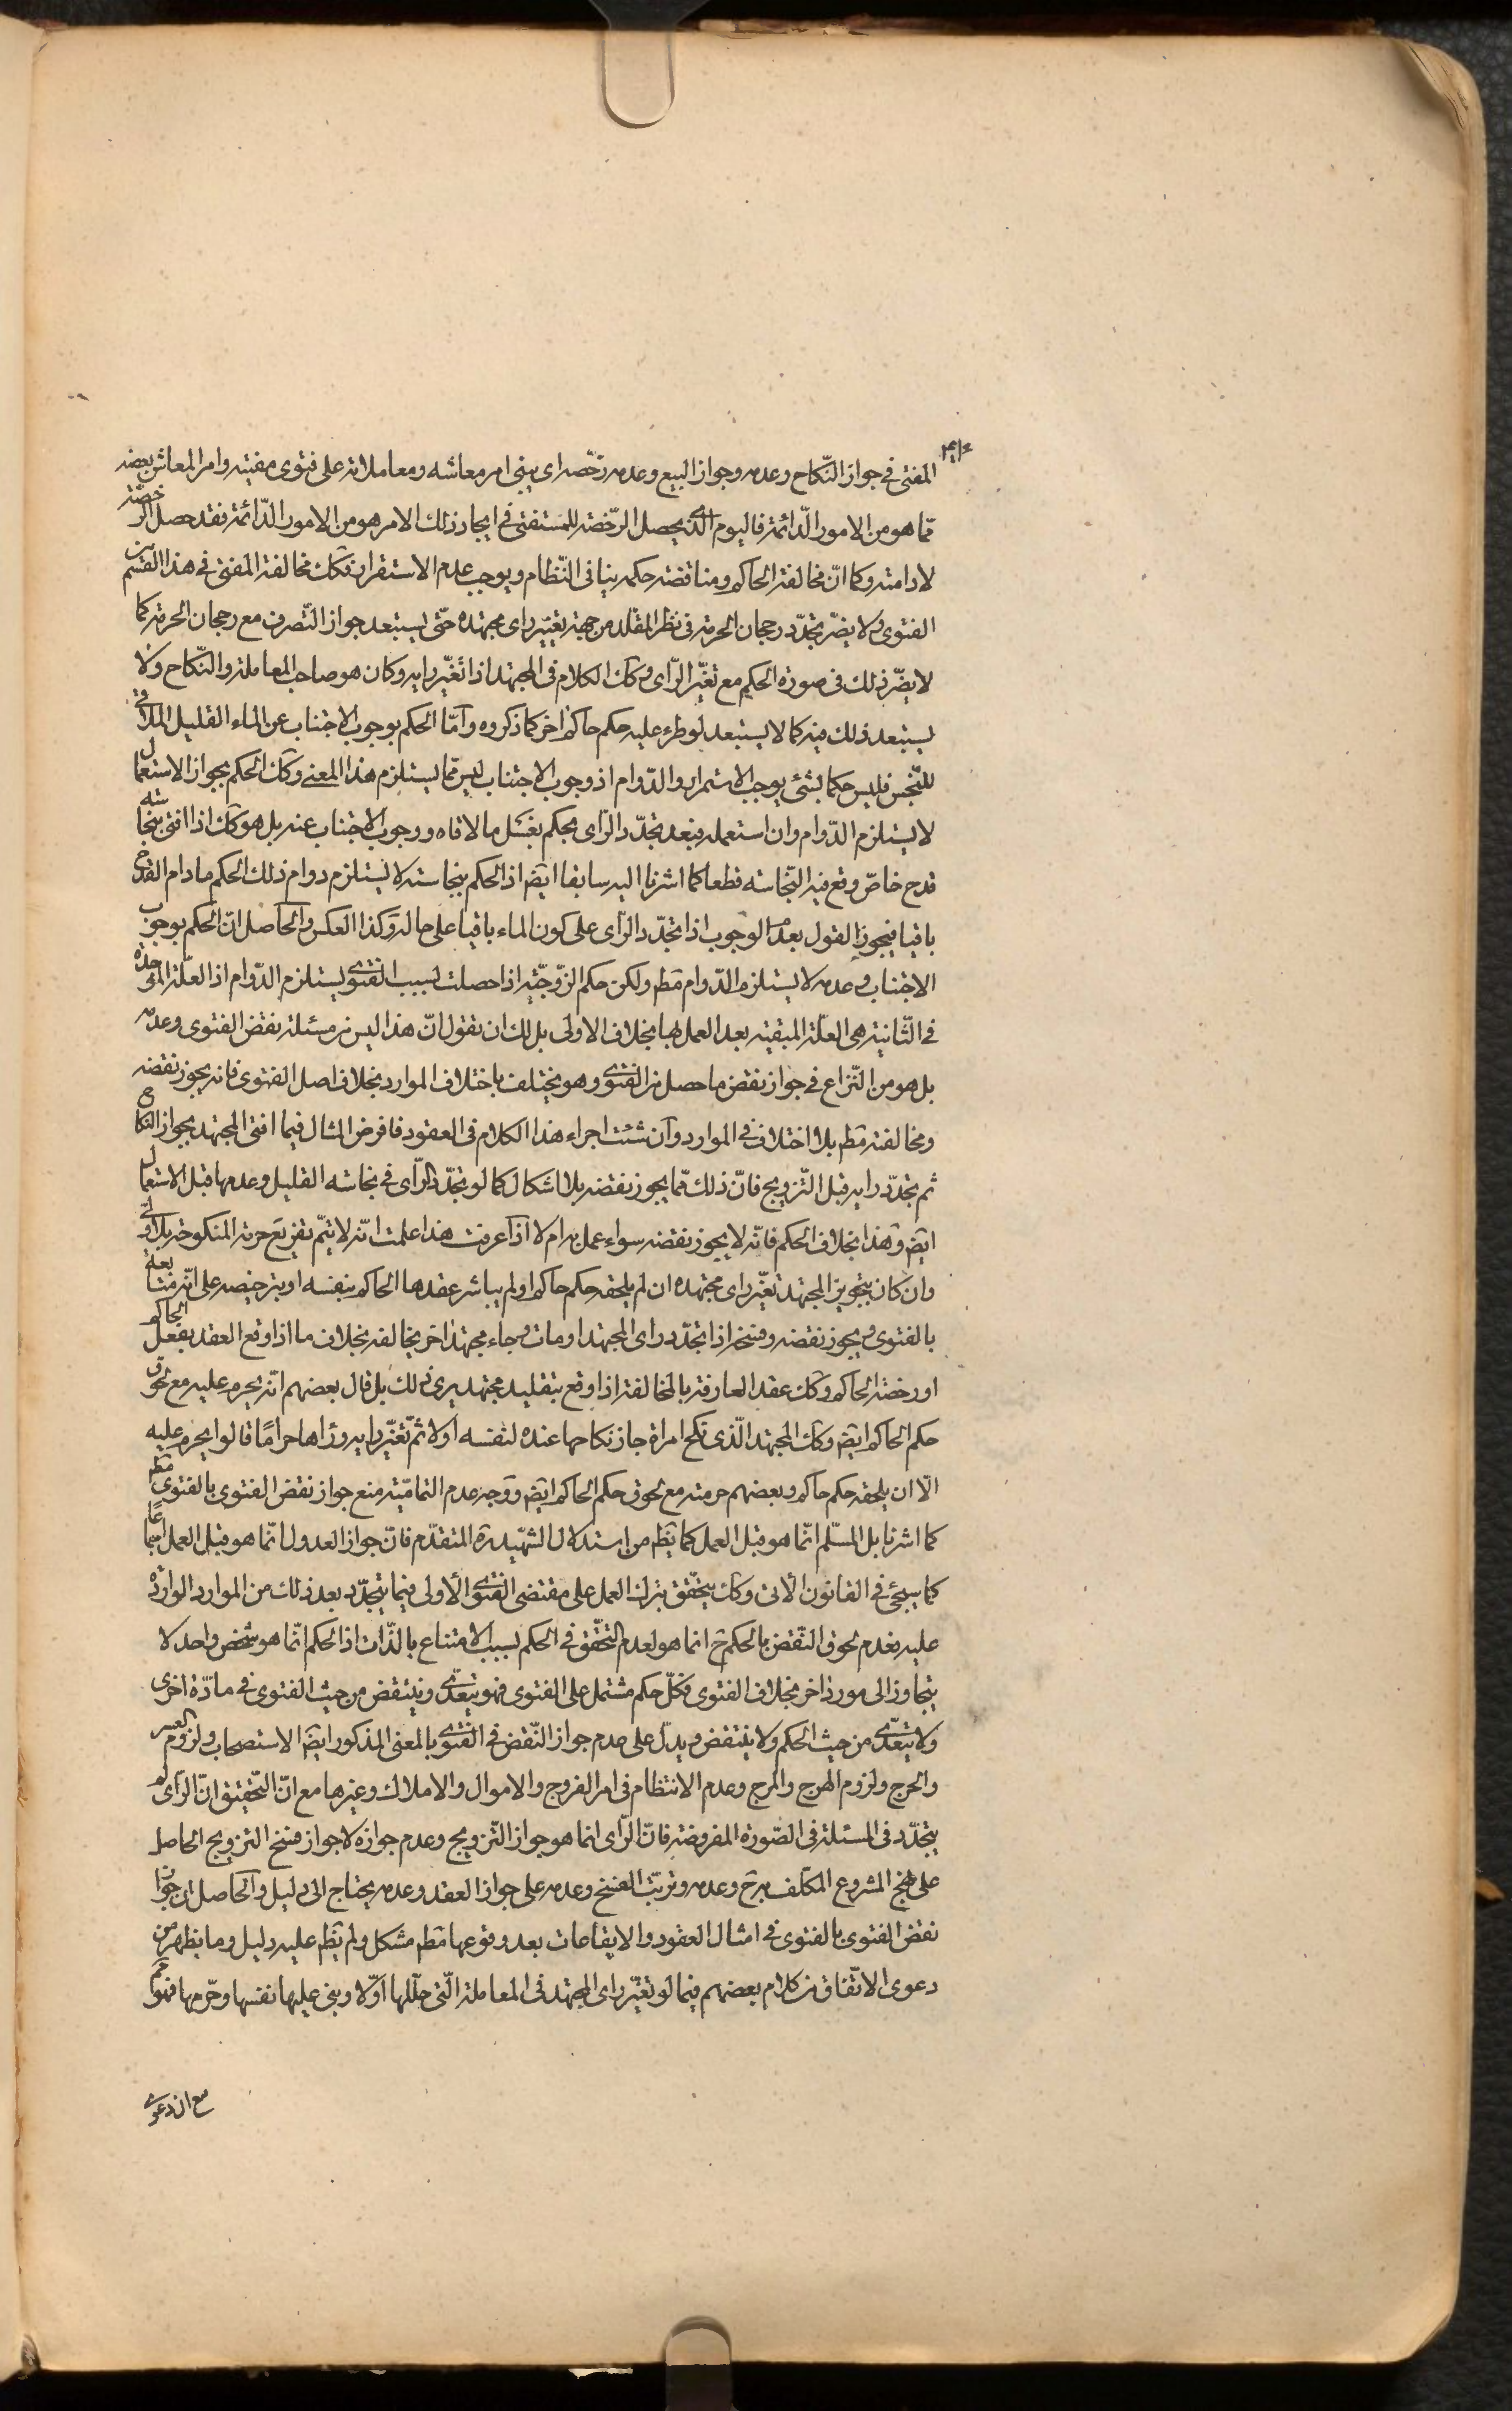 المفتى فى جواز النّكاح وعدمه وجواز البيع وعدمه رخّصه اى يبنى امر معاشه ومعاملاته على فتوى مفيته وامر المعاش بعضه
ممّا هو من الامور الدّائمة فاليوم الّذى يحصل الرّخصة للمستفتى فى ايجاد ذلك الامر هو من الامور الدّائمة فقد حصل الرّخصة
لادامته وكما انّ مخالفة الحاكم ومناقضة حكمه ينافى النّظام ويوجب عدم الاستقرار فكك مخالفة المفتى فى هذا القسم من
الفتوى ولا يضرّ تجدّد رجحان الحرمة فى نظر المقلد من جهة تغيّر راى مجتهده حتّى يستبعد جواز التّصرف مع رجحان الحرمة كما
لا يضرّ ذلك فى صورة الحكم مع تغيّر الرّاى وكك الكلام فى المجتهد اذا تغيّر رايه وكان هو صاحب المعاملة والنّكاح ولا
يستبعد ذلك منه كما لا يستبعد لو طرء عليه حكم حاكم اخر كما ذكروه وامّا الحكم بوجوب الاجتناب عن الماء القليل الملاقى
للنّجس فليس حكما بشئ يوجب الاستمرار والدّوام اذ وجوب الاجتناب ليس ممّا يستلزم هذا المعنى وكك الحكم بجواز الاستعمال
لا يستلزم الدّوام وان استعمله فبعد تجدّد الرّاى يحكم بغسل ما لاقاه ووجوب الاجتناب عنه بل هو كك اذا افتى بنجاسة
قدح خاصّ وقع فيه النّجاسة قطعا كما اشرنا اليه سابقا ايضا اذ الحكم بنجاسته لا يستلزم دوام ذلك الحكم ما دام القدح
باقيا فيجوز القول بعدم الوجوب اذا تجدّد الرّاى على كون الماء باقيا على حاله وكذا العكس والحاصل انّ الحكم بوجوب
الاجتناب وعدمه لا يستلزم الدّوام مطم ولكن حكم الزّوجيّة اذا حصلت بسبب الفتوى يستلزم الدّوام اذ العلّة الموجدة
فى الثّانية هى العلّة المبقية بعد العمل بها بخلاف الاولى بل لك ان نقول انّ هذا ليس من مسئلة نقض الفتوى وعدمه
بل هو من النّزاع فى جواز نقض ما حصل من الفتوى وهو يختلف باختلاف الموارد بخلاف اصل الفتوى فانه يجوز نقضه
ومخالفته مطم بلا اختلاف فى الموارد وان شئت اجراء هذا الكلام فى العقود فافرض المثال فيما افتى المجتهد بجواز النّكاح
ثم تجدّد رايه قبل التّزويج فانّ ذلك ممّا يجوز نقضه بلا اشكال كما لو تجدّد الرّاى فى نجاسة القليل وعدمها قبل الاستعمال
ايضا وهذا بخلاف الحكم فانّه لا يجوز نقضه سواء عمل به ام لا اذا عرفت هذا علمت انّه لا يتمّ تفريع حرمة المنكوحة بلا ولى
وان كان بتجويز المجتهد بتغيّر راى مجتهده ان لم يلحقه حكم حاكم او لم يباشر عقدها الحاكم بنفسه او بترخيصه على انّه متابعة
بالفتوى ويجوز نقضه وفسخه اذا تجدّد راى المجتهد او مات وجاء مجتهد اخر يخالفه بخلاف ما اذا وقع العقد بفعل الحاكم
او رخصة الحاكم وكك عقد العارفة بالمخالفة اذا وقع بتقليد مجتهد يرى ذلك بل قال بعضهم انّه يحرم عليه مع لحوق
حكم الحاكم ايضا وكك المجتهد الّذى نكح امراة جاز نكاحها عنده لنفسه اولا ثمّ تغيّر رايه وراها حرامًا قالوا يحرم عليه
الّا ان يلحقه حكم حاكم وبعضهم حرمته مع لحوق حكم الحاكم ايضا ووجه عدم التماميّة منع جواز نقض الفتوى بالفتوى مطم
كما اشرنا بل المسلّم انّما هو قبل العمل كما يظهر من استدلال الشّهيد ره المتقدّم فانّ جواز العدول انّما هو قبل العمل اجماعًا
كما سيجئ فى القانون الاتى وكك يتحقّق بترك العمل على مقتضى الفتوى الاولى فيما يتجدّد بعد ذلك من الموارد الواردة
عليه فعدم لحوق النّقض بالحكم ح انما هو لعدم التّحقّق فى الحكم بسبب الامتناع بالذّات اذ الحكم انّما هو شخص واحد لا
يتجاوز الى مورد اخر بخلاف الفتوى فكلّ حكم مشتمل على الفتوى فهو يتعدّى وينتقض من حيث الفتوى فى مادّة اخرى
ولا يتعدّى من حيث الحكم ولا ينتقض ويدلّ على عدم جواز النّقض فى الفتوى بالمعنى المذكور ايضا الاستصحاب ولزوم العسر
والحرج ولزوم الهرج والمرج وعدم الانتظام فى امر الفروج والاموال والاملاك وغيرها مع انّ التّحقيق انّ الرّاى لم
يتجدّد فى المسئلة فى الصّورة المفروضة فانّ الرّاى انما هو جواز التّزويج وعدم جوازه لا جواز فسخ التزويج الحاصل
على نهج المشروع المكلّف به ح وعدمه وترتّب الفسخ وعدمه على جواز العقد وعدمه يحتاج الى دليل والحاصل ان جواز
نقض الفتوى بالفتوى فى امثال العقود والايقاعات بعد وقوعها مطم مشكل ولم يظهر عليه دليل وما يظهر من
دعوى الاتّفاق من كلام بعضهم فيما لو تغيّر راى المجتهد فى المعاملة الّتى حلّلها اوّلا وبنى عليها نفسها وحرّمها فهو مم
مع ان دعوى